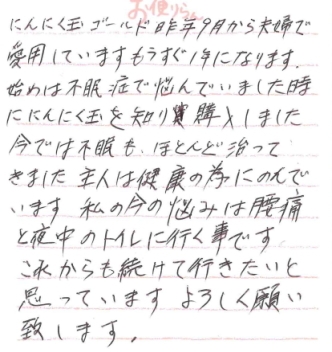 お便りら
にんにく玉ゴールド昨年9月から夫婦で
愛用していますもうすぐ1年になります.
始めは不眠症で悩んでいました時
ににんにく玉を知り購入しました
今では不眠も、ほとんど治って
きました 主人は健康の為にのんで
います 私の今の悩みは腰痛
と夜中のトイレに行く事です
これからも続けて行きたいと
思っています よろしく願い
致します.